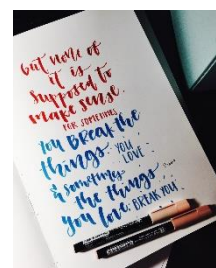 but none of
it is
supposed to
make sense.
FOR SOMETIMES
you BREAK the
things you
LOVE
& sometimes
the things
you love, BREAK YOU.